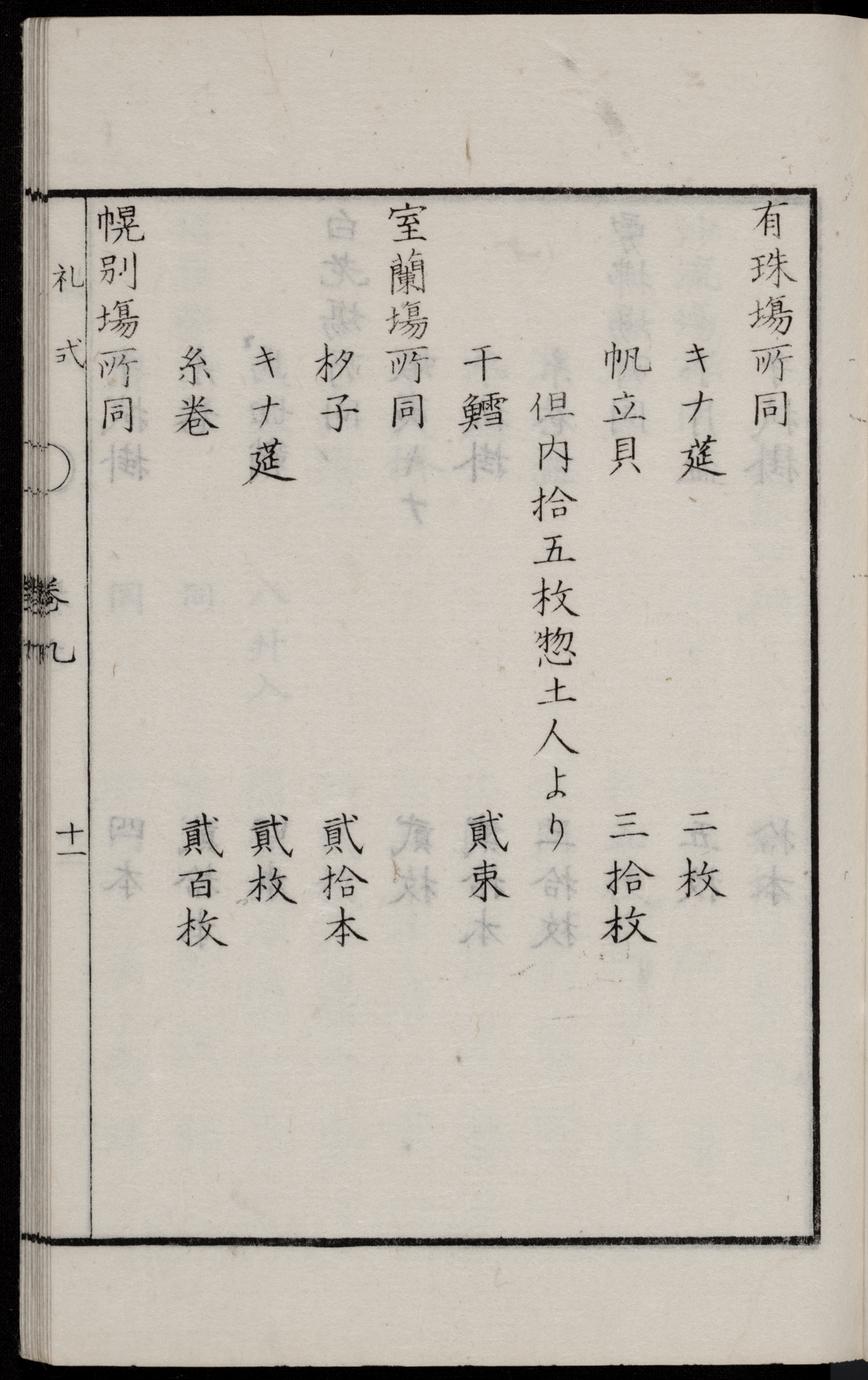 有珠塲所同
キナ莚 二枚
帆立貝 三拾枚
但内拾五枚惣土人より
干鱈 貳束
室蘭塲所同
杉子 貳拾本
キナ莚 貳枚
糸巻 貳百枚
幌別塲所同
礼式 巻九 十一